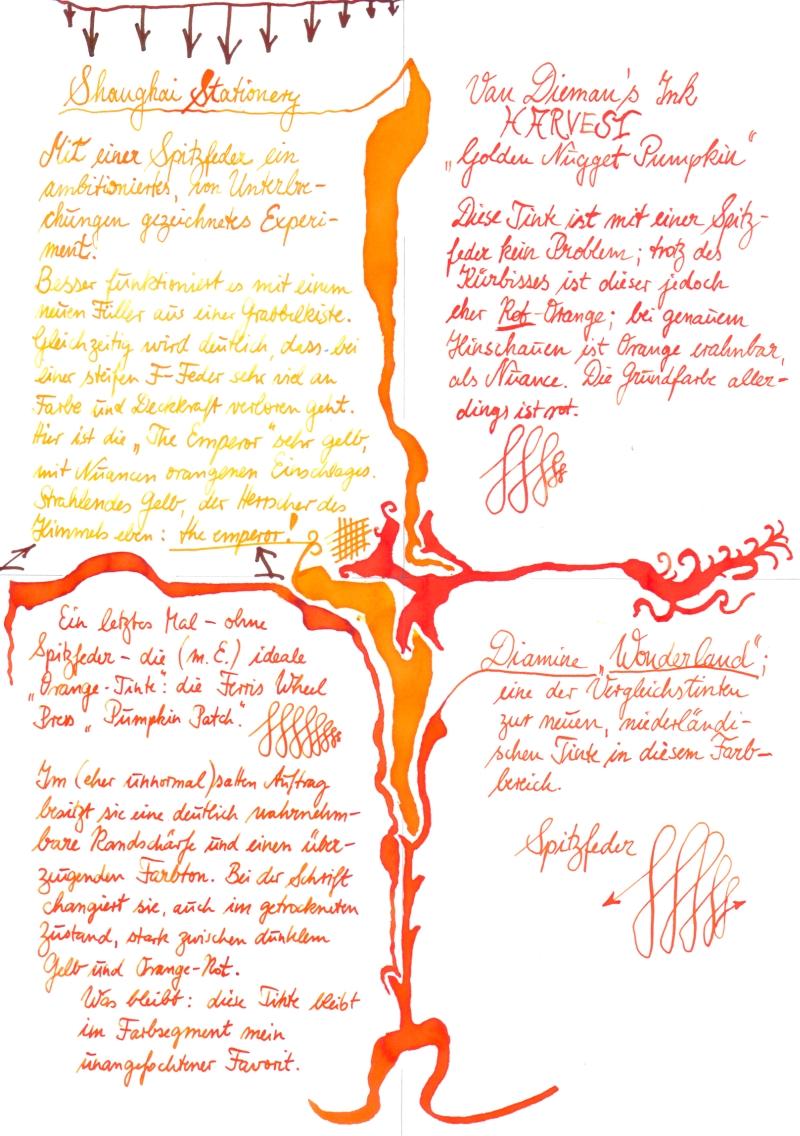 Shanghai Stationery
Mit einer Spitzfeder ein
ambitioniertes, von Unterbre-
chungen gezeichnetes Experi-
ment.
Besser funktioniert es mit einem
neuen Füller aus einer Grabbelkiste.
Gleichzeitig wird deutlich, dass bei
einer steifen F-Feder sehr viel an
Farbe und Deckkraft verloren geht.
Hier ist die „The Emperor" sehr gelb,
mit Nuancen orangenen Einschlages.
Strahlendes Gelb, der Herrscher des
Himmels eben: the emperor!
Van Dieman's Ink
HARVEST
„Golden Nugget Pumpkin"
Diese Tinte ist mit einer Spitz-
feder kein Problem; trotz des
Kürbisses ist dieser jedoch
eher Rot-Orange; bei genauem
Hinschauen ist Orange erahnbar,
als Nuance. Die Grundfarbe aller-
dings ist rot.
Ein letztes Mal – ohne
Spitzfeder – die (m. E.) ideale
„Orange-Tinte": die Ferris Wheel
Press „Pumpkin Patch".
Im (eher unnormal) satten Auftrag
besitzt sie eine deutlich wahrnehm-
bare Randschärfe und einen über-
zeugenden Farbton. Bei der Schrift
changiert sie, auch im getrockneten
Zustand, stark zwischen dunklem
Gelb und Orange-Rot.
Was bleibt: diese Tinte bleibt
im Farbsegment mein
unangefochtener Favorit.
Diamine „Wonderland";
eine der Vergleichstinten
zur neuen, niederländi-
schen Tinte in diesem Farb-
bereich.
Spitzfeder